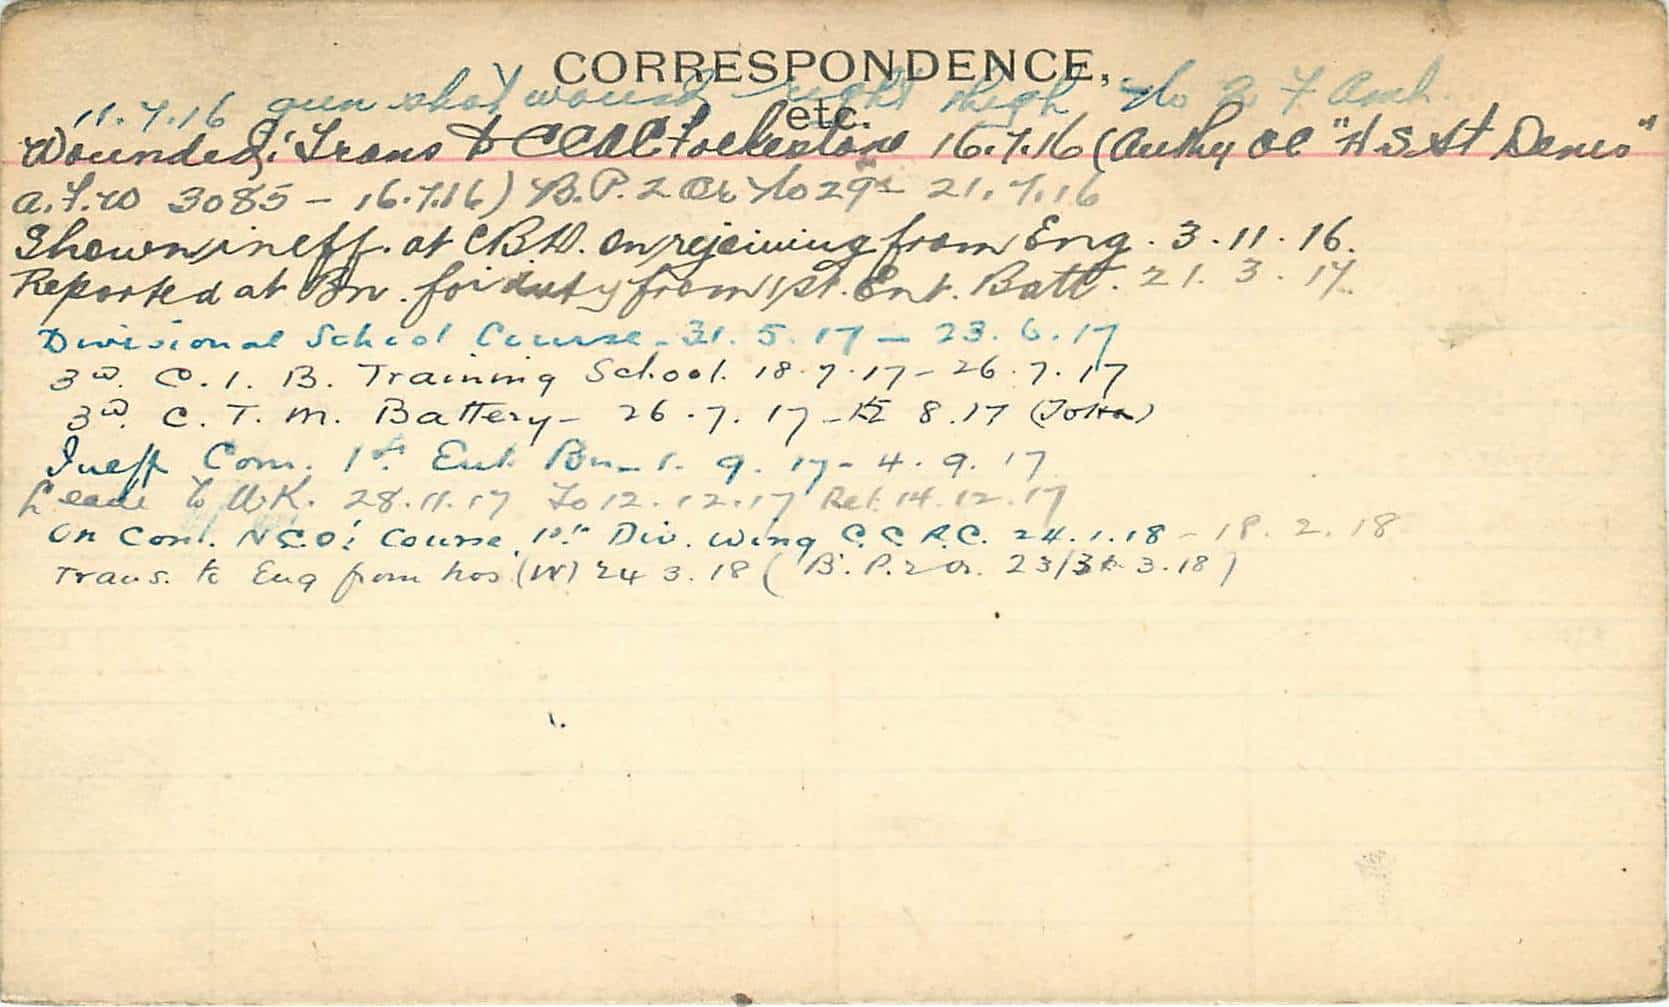 CORRESPONDENCE,
etc.
11.7.16 gun shot wound right thigh No 2 F Amb.
Wounded; Trans to CCAC Folkestone 16.7.16 (Authy OC "H.S. St Denis"
A.F.W 3085 - 16.7.16) B.P. 2 Or No 29 21.7.16
Shown ineff. at CBD. on rejoining from Eng. 3.11.16.
Reported at Bn. for duty from 1st. Ent. Batt. 21.3.17.
Divisional School Course - 31.5.17 - 23.6.17
3rd. C.I.B. Training School. 18.7.17 - 26.7.17
3rd. C.T.M. Battery - 26.7.17 - 8.17
Ineff Com. 1st. Ent. Bn - 1.9.17 - 4.9.17
Leave to U.K. 28.11.17 To 12.12.17 Ret. 14.12.17
On Com. N.C.O's Course, 1st Div. Wing C.C.R.C. 24.1.18 - 18.2.18
Trans. to Eng from hos (W) 24 3.18 (B.P. 2 Or. 3.18)